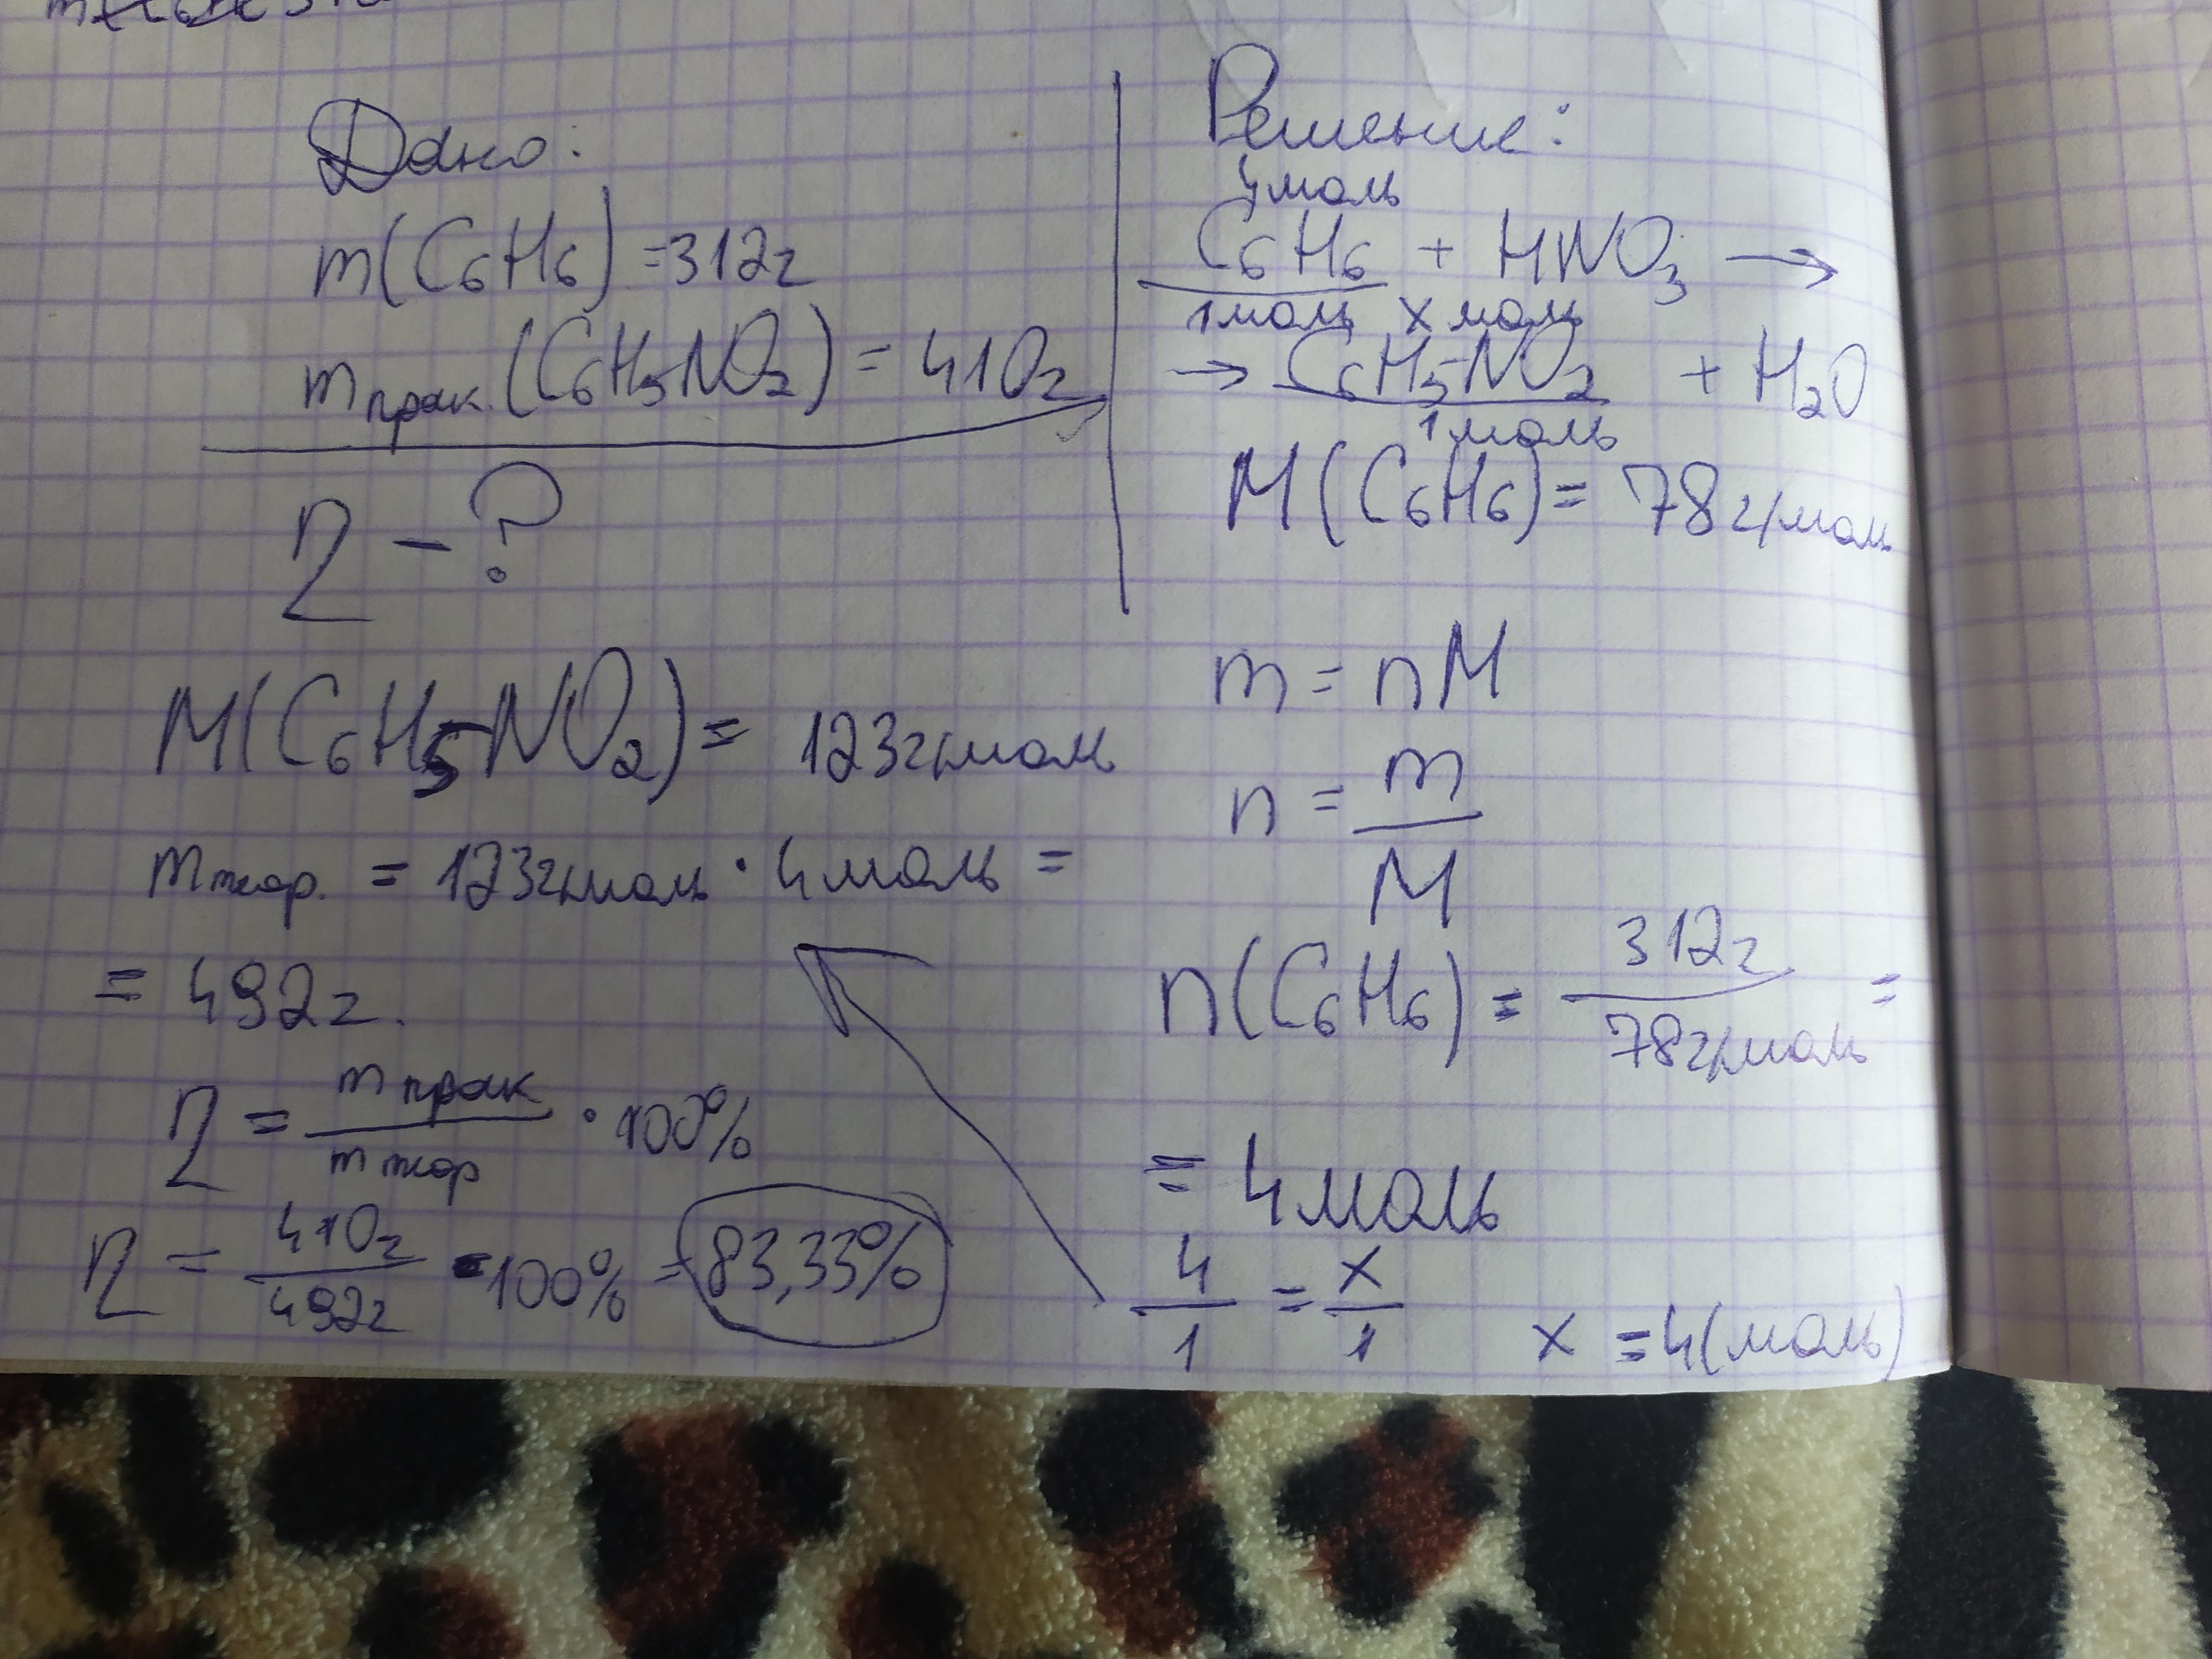 Дано:
m(C₆H₆) = 312г
mпрак.(C₆H₅NO₂) = 410г
η - ?
Решение:
4моль
C₆H₆ + HNO₃ →
1моль х моль
→ C₆H₅NO₂ + H₂O
1моль
M(C₆H₆) = 78г/моль
m = nM
n = m/M
n(C₆H₆) = 312г/78г/моль =
= 4моль
4/1 = x/1 x = 4(моль)
M(C₆H₅NO₂) = 123г/моль
mтеор. = 123г/моль · 4моль =
= 492г.
η = mпрак/mтеор · 100%
η = 410г/492г · 100% = 83,33%